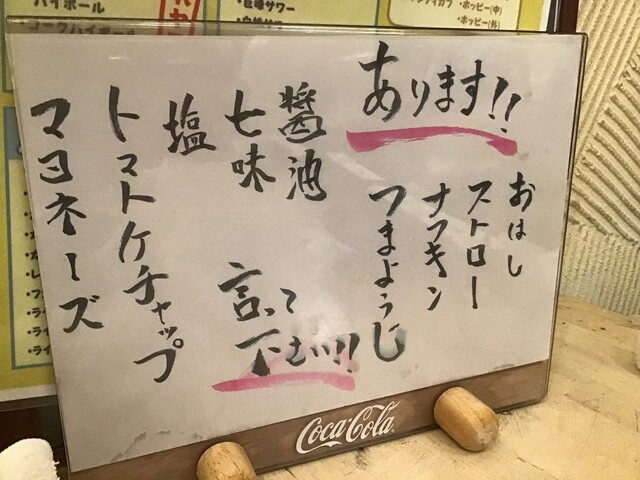 あります!!
おはし
ストロー
ナフキン
つまようじ
醤油
七味
塩
トマトケチャップ
マヨネーズ
言って
下さい!!
Coca-Cola
ハイボール
コークハイボール
・巨峰サワー
・ホッピー(中)
・ホッピー(外)